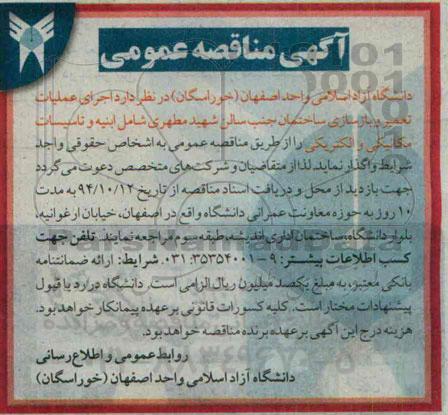 آگهی مناقصه عمومی
دانشگاه آزاد اسلامی واحد اصفهان (خوراسگان) در نظر دارد اجرای عملیات
تعمیر و بازسازی ساختمان جنب سالن شهید مطهری شامل ابنیه و تاسیسات
مکانیکی و الکتریکی را از طریق مناقصه عمومی به اشخاص حقوقی واجد
شرایط واگذار نماید. لذا از متقاضیان و شرکت‌های متخصص دعوت می‌گردد
جهت بازدید از محل و دریافت اسناد مناقصه از تاریخ ۹۴/۱۰/۱۲ به مدت
۱۰ روز به حوزه معاونت عمرانی دانشگاه واقع در اصفهان، خیابان ارغوانیه،
بلوار دانشگاه، ساختمان اداری اندیشه، طبقه سوم مراجعه نمایند. تلفن جهت
کسب اطلاعات بیشتر: ۹-۰۳۱،۳۵۳۵۴۰۰۱ شرایط: ارائه ضمانتنامه
بانکی معتبر، به مبلغ یکصد میلیون ریال الزامی است. دانشگاه در رد یا قبول
پیشنهادات مختار است. کلیه کسورات قانونی بر عهده پیمانکار خواهد بود.
هزینه درج این آگهی بر عهده برنده مناقصه خواهد بود.
روابط عمومی و اطلاع رسانی
دانشگاه آزاد اسلامی واحد اصفهان (خوراسگان)